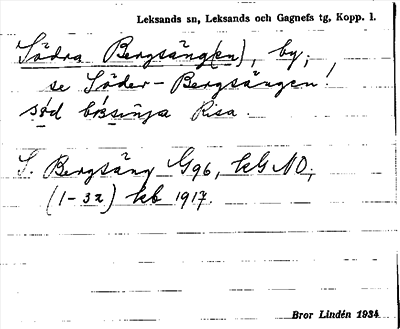 Leksands sn, Leksands och Gagnefs tg, Kopp. l.
Södra Bergsäng(en), by;
se Söder-Bergsängen!
sød Risa.
S. Bergsäng G96, kG NO;
(1-32) kb 1917.
Bror Lindén 1934